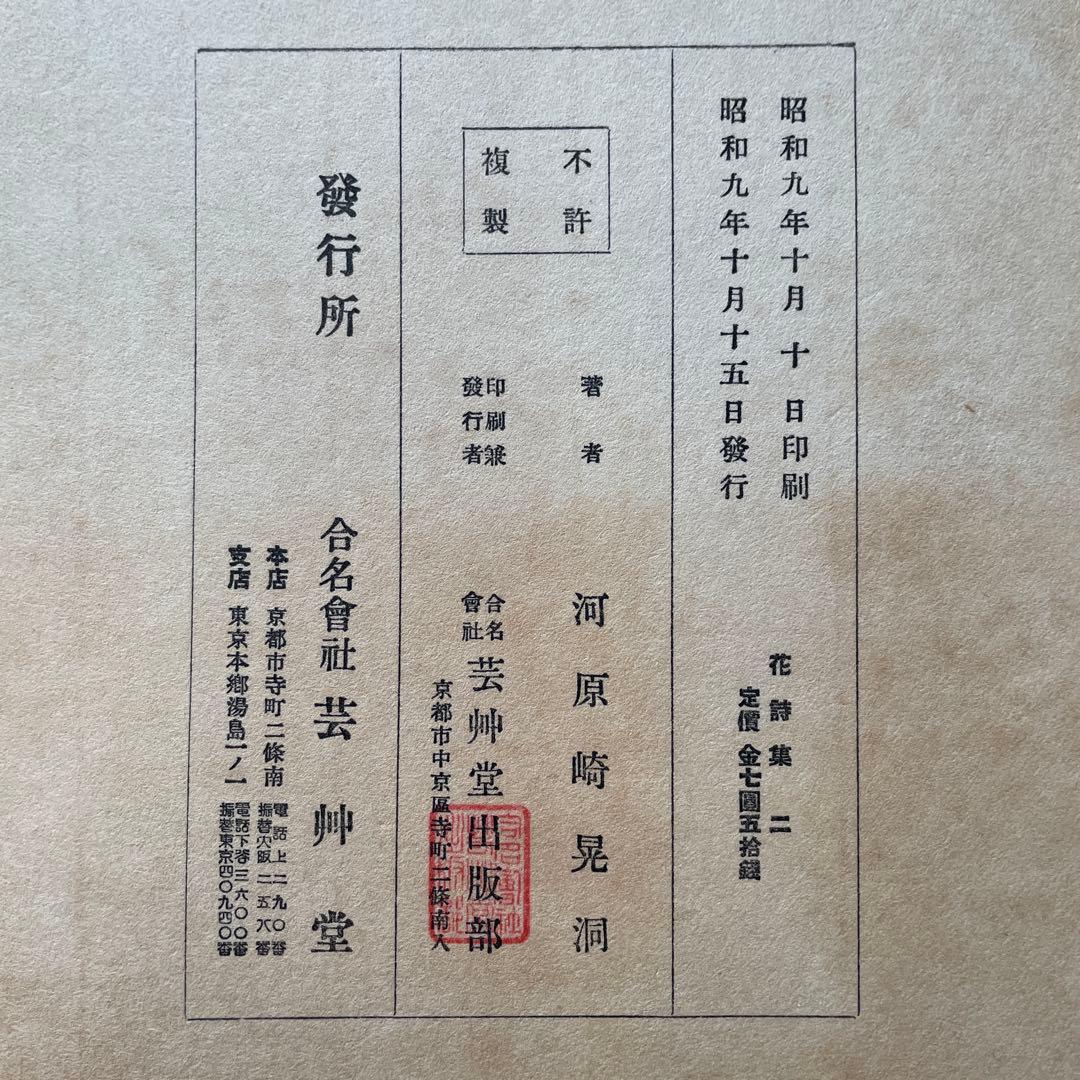 昭和九年十月十日印刷
昭和九年十月十五日發行
花詩集二
定價金七圓五拾錢
不許
複製
著者
河原崎晃洞
印刷兼
發行者
合名
會社
芸艸堂出版部
京都市中京區寺町二條南入
發行所
合名會社芸艸堂
本店 京都市寺町二條南
電話上二九〇番
振替大阪二五八番
支店 東京本鄕湯島一ノ一
電話下谷三六〇〇番
振替東京四〇九四〇番